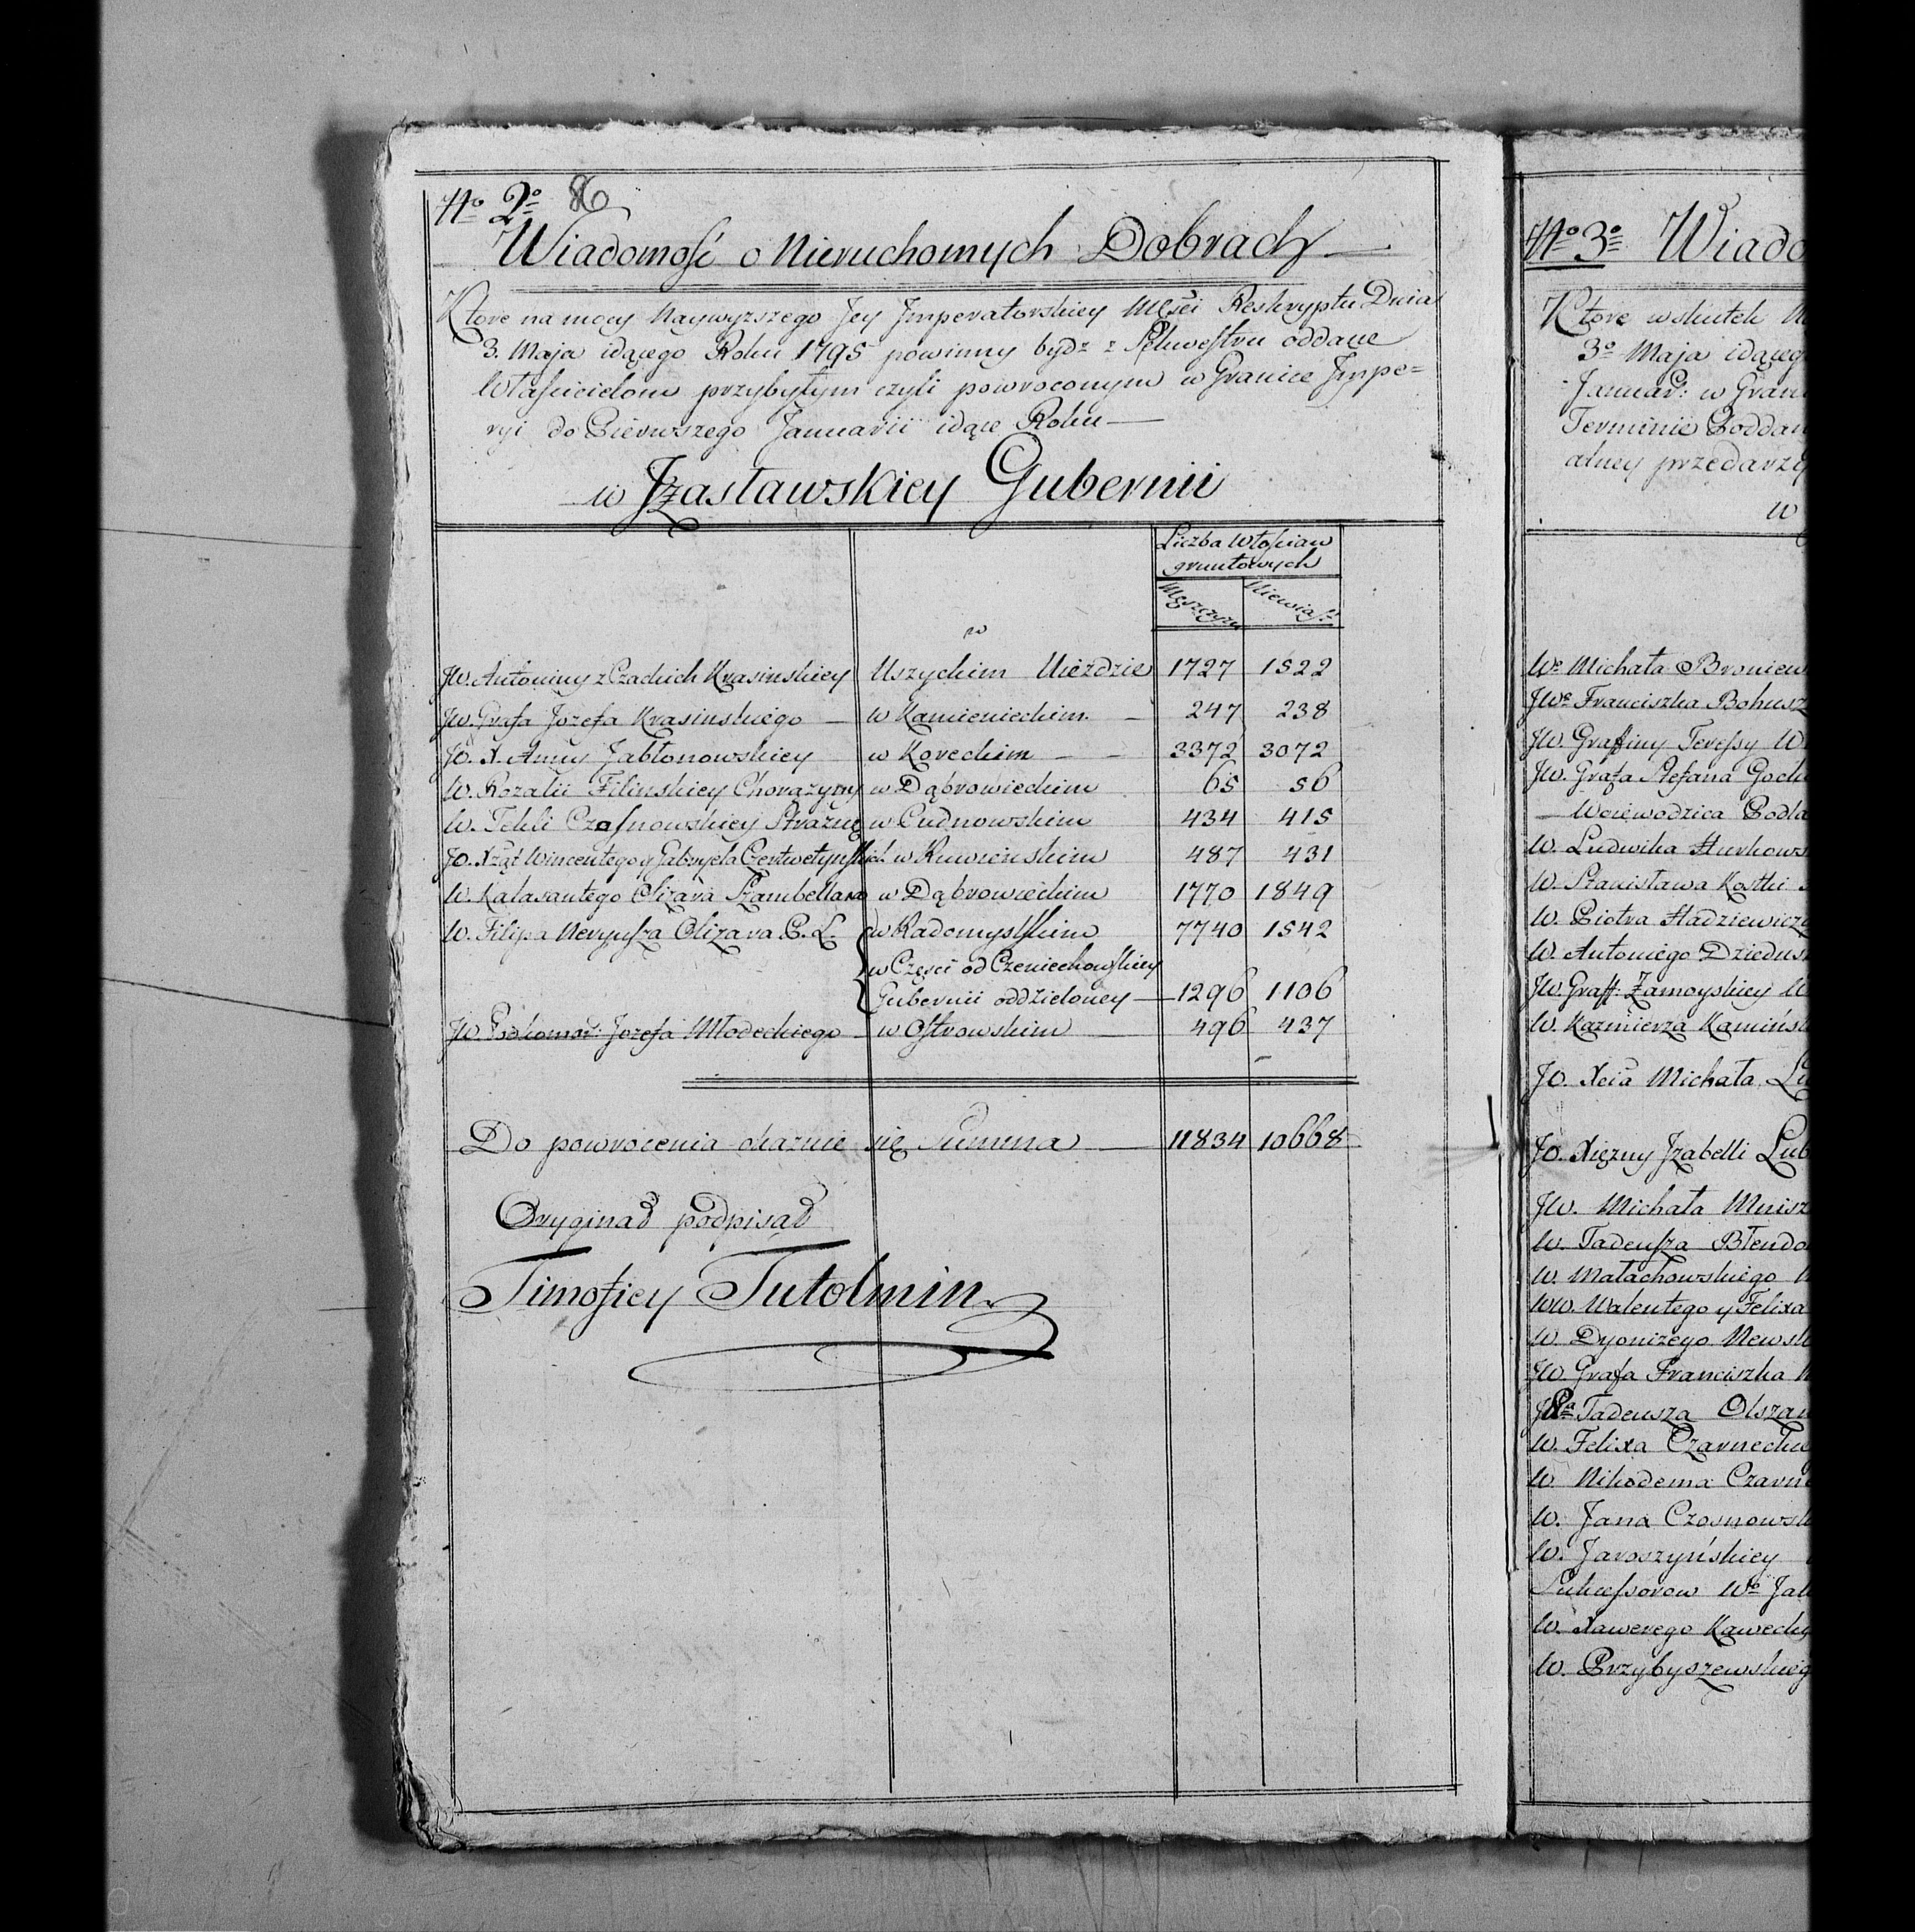 No 2o 86
Wiadomość o Nieruchomych Dobrach
Ktore na mocy Naywyzszego Jey Imperatorskiey Mści Reskryptu Dnia
3. Maja idącego Roku 1795 powinny bydz z Sekwestru oddane
Właścicielom przybyłym czyli powroconym w Granice Impe=
ryi do Pierwszego Januarii idące Roku
w Jzasławskiey Gubernii
Liczba Włoscian
gruntowych
Męszczyzn Niewiast
w
JW. Antoniny z Czackich Krasinskiey Uszyckim Uieździe 1727 1522
JW. Grafa Jozefa Krasinskiego w Kamienieckim 247 238
JO. X. Anny Jabłonowskiey w Koreckim 3372 3072
W. Rozalii Filinskiey Chorążyny w Dąbrowieckim 65 56
W. Tekli Czosnowskiey Strażnę w Cudnowskim 434 415
JO. Xżąt Wincentego y Gabryela Czertwetynskich w Ruwienskim 487 431
W. Kalasantego Olizara Szambellana w Dąbrowieckim 1770 1849
W. Filipa Neryusza Olizara P. L. w Radomyslskim 7740 1542
w Częsci od Czeniechowskiey
Gubernii oddzieloney 1296 1106
JW. Podkomor: Jozefa Młodeckiego w Ostrowskim 496 437
Do powrocenia okazuie się Summa 11834 10668
Oryginał podpisał
Timofiey Tutolmin
No 3o Wiado
Ktore w skutek
3o Maja idąceg
Januar: w Gran
Terminie Poddan
alney przedarzy
w
We Michała Broniew
JWe Franciszka Bohusz
JW. Graffiny Teressy W
JW. Grafa Stefana Goch
Woiewodzica Podla
W. Ludwika Hurkows
W. Stanisława Kostki
W. Piotra Hadziewicz
W. Antoniego Dziedus
JW. Graff. Zamoyskiey
W. Kazmierza Kamińs
JO. Xcia Michała Lu
JO. Xiężny Jzabelli Lub
JW. Michała Mnisz
W. Tadeusza Błendo
W. Małachowskiego
WW. Walentego y Felixa
W. Dyonizego Newsk
JW. Grafa Franciszka
Tadeusza Olszan
W. Felixa Czarneckie
W. Nikodema Czarn
W. Jana Czosnowsk
W. Jaroszyńskiey
Sukcessorow Wo Jab
W. Xawerego Kaweck
W. Przybyszewskieg